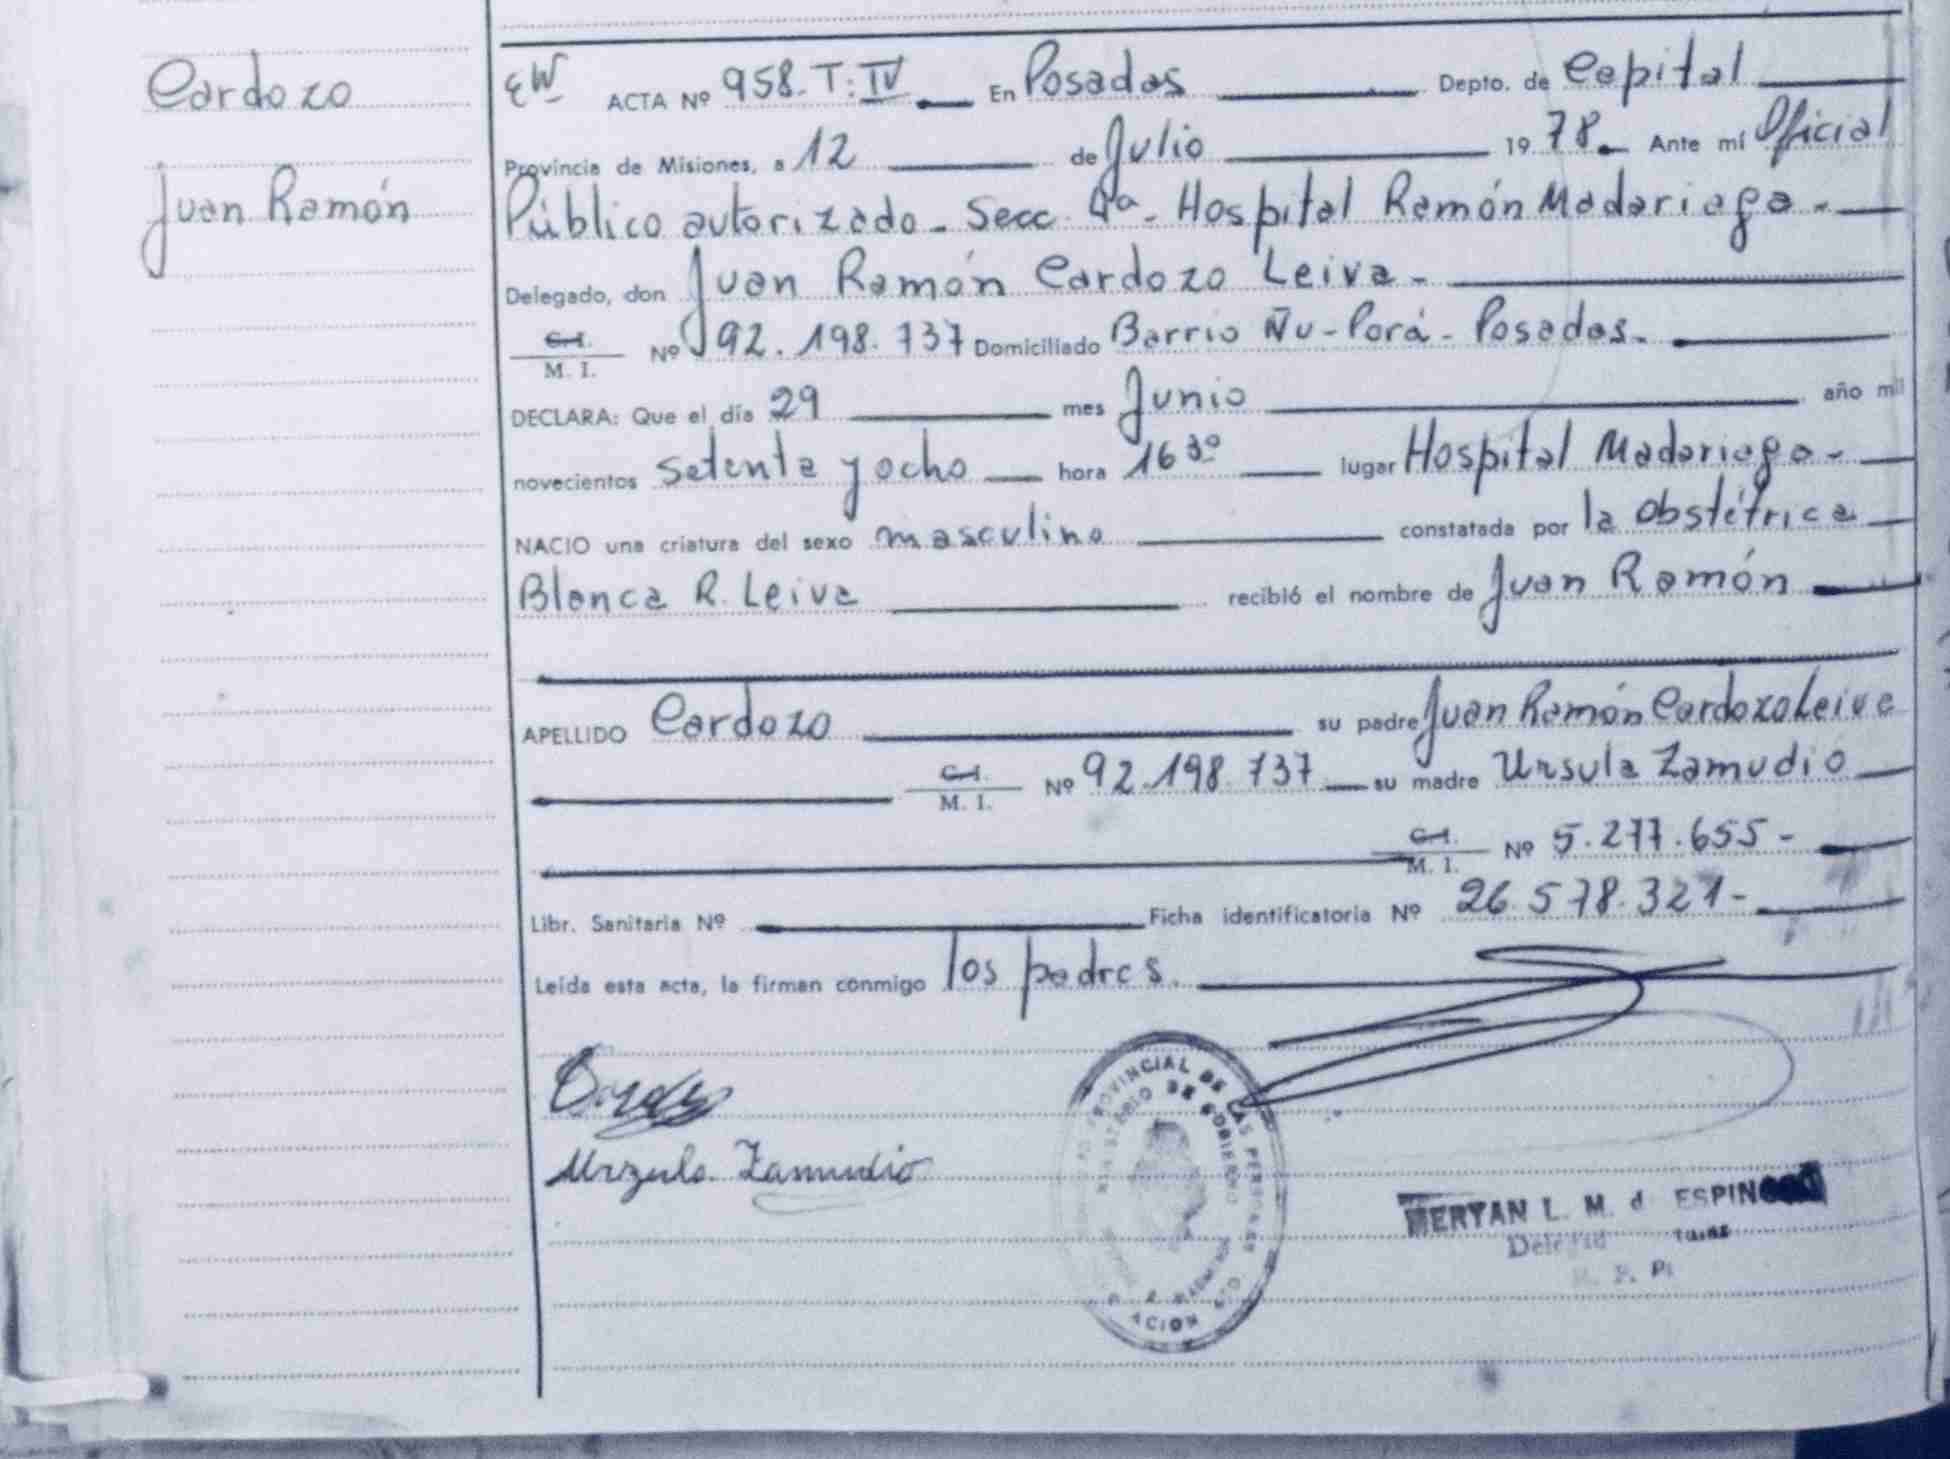 Cardozo
Juan Ramón
EW ACTA Nº 958. T: IV En Posadas Depto. de Capital
Provincia de Misiones, a 12 de Julio 1978. Ante mí Oficial
Público autorizado - Secc. 4a - Hospital Ramón Madariaga -
Delegado, don Juan Ramón Cardozo Leiva -
C.I. / M. I. Nº 92.198.737 Domiciliado Barrio Ñu-Porá - Posadas -
DECLARA: Que el día 29 mes Junio año mil
novecientos setenta y ocho hora 16 30 lugar Hospital Madariaga -
NACIO una criatura del sexo masculino constatada por la obstétrica
Blanca R. Leiva recibió el nombre de Juan Ramón
APELLIDO Cardozo su padre Juan Ramón Cardozo Leiva
C.I. / M. I. Nº 92.198.737 su madre Ursula Zamudio
C.I. / M. I. Nº 5.277.655 -
Libr. Sanitaria Nº Ficha identificatoria Nº 26.578.321 -
Leída esta acta, la firman conmigo los padres.
Urzula Zamudio
PROVINCIAL DE LAS PERSONAS
MINISTERIO DE GOBIERNO
L. M. d ESPIN